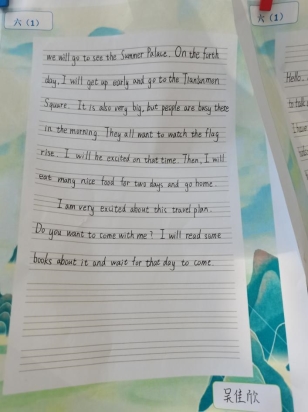 六（1）
we will go to see the Summer Palace. On the forth
day, I will get up early and go to the Tiananmen
Square. It is also very big, but people are busy there
in the morning. They all want to watch the flag
rise. I will be excited on that time. Then, I will
eat many nice food for two days and go home.
I am very excited about this travel plan.
Do you want to come with me? I will read some
books about it and wait for that day to come.
吴佳欣
六（1）
Hello,
to talk